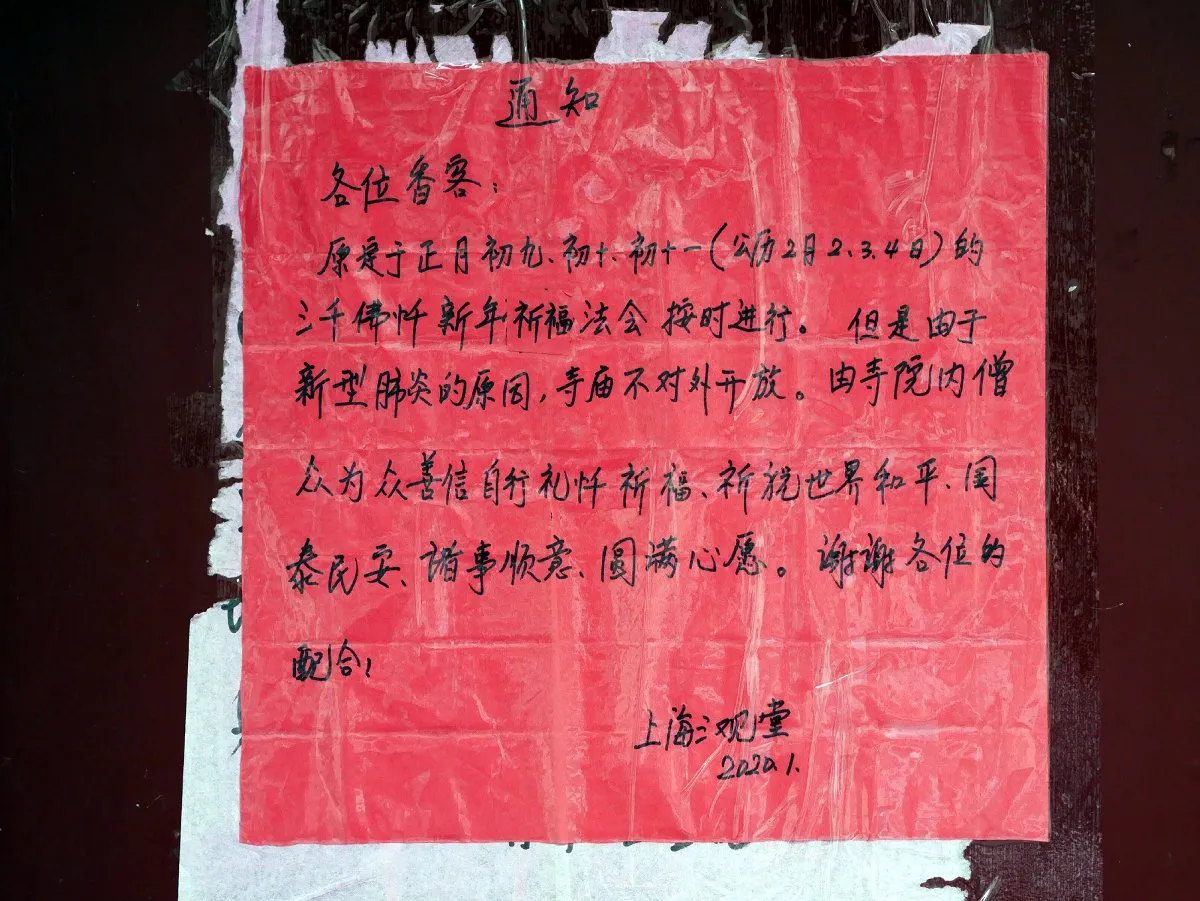 通知
各位香客：
原定于正月初九、初十、初十一（公历2月2.3.4日）的
三千佛忏新年祈福法会按时进行。但是由于
新型肺炎的原因，寺庙不对外开放。由寺院内僧
众为众善信自行礼忏祈福、祈祝世界和平、国
泰民安、诸事顺意、圆满心愿。谢谢各位的
配合！
上海三观堂
2020.1.